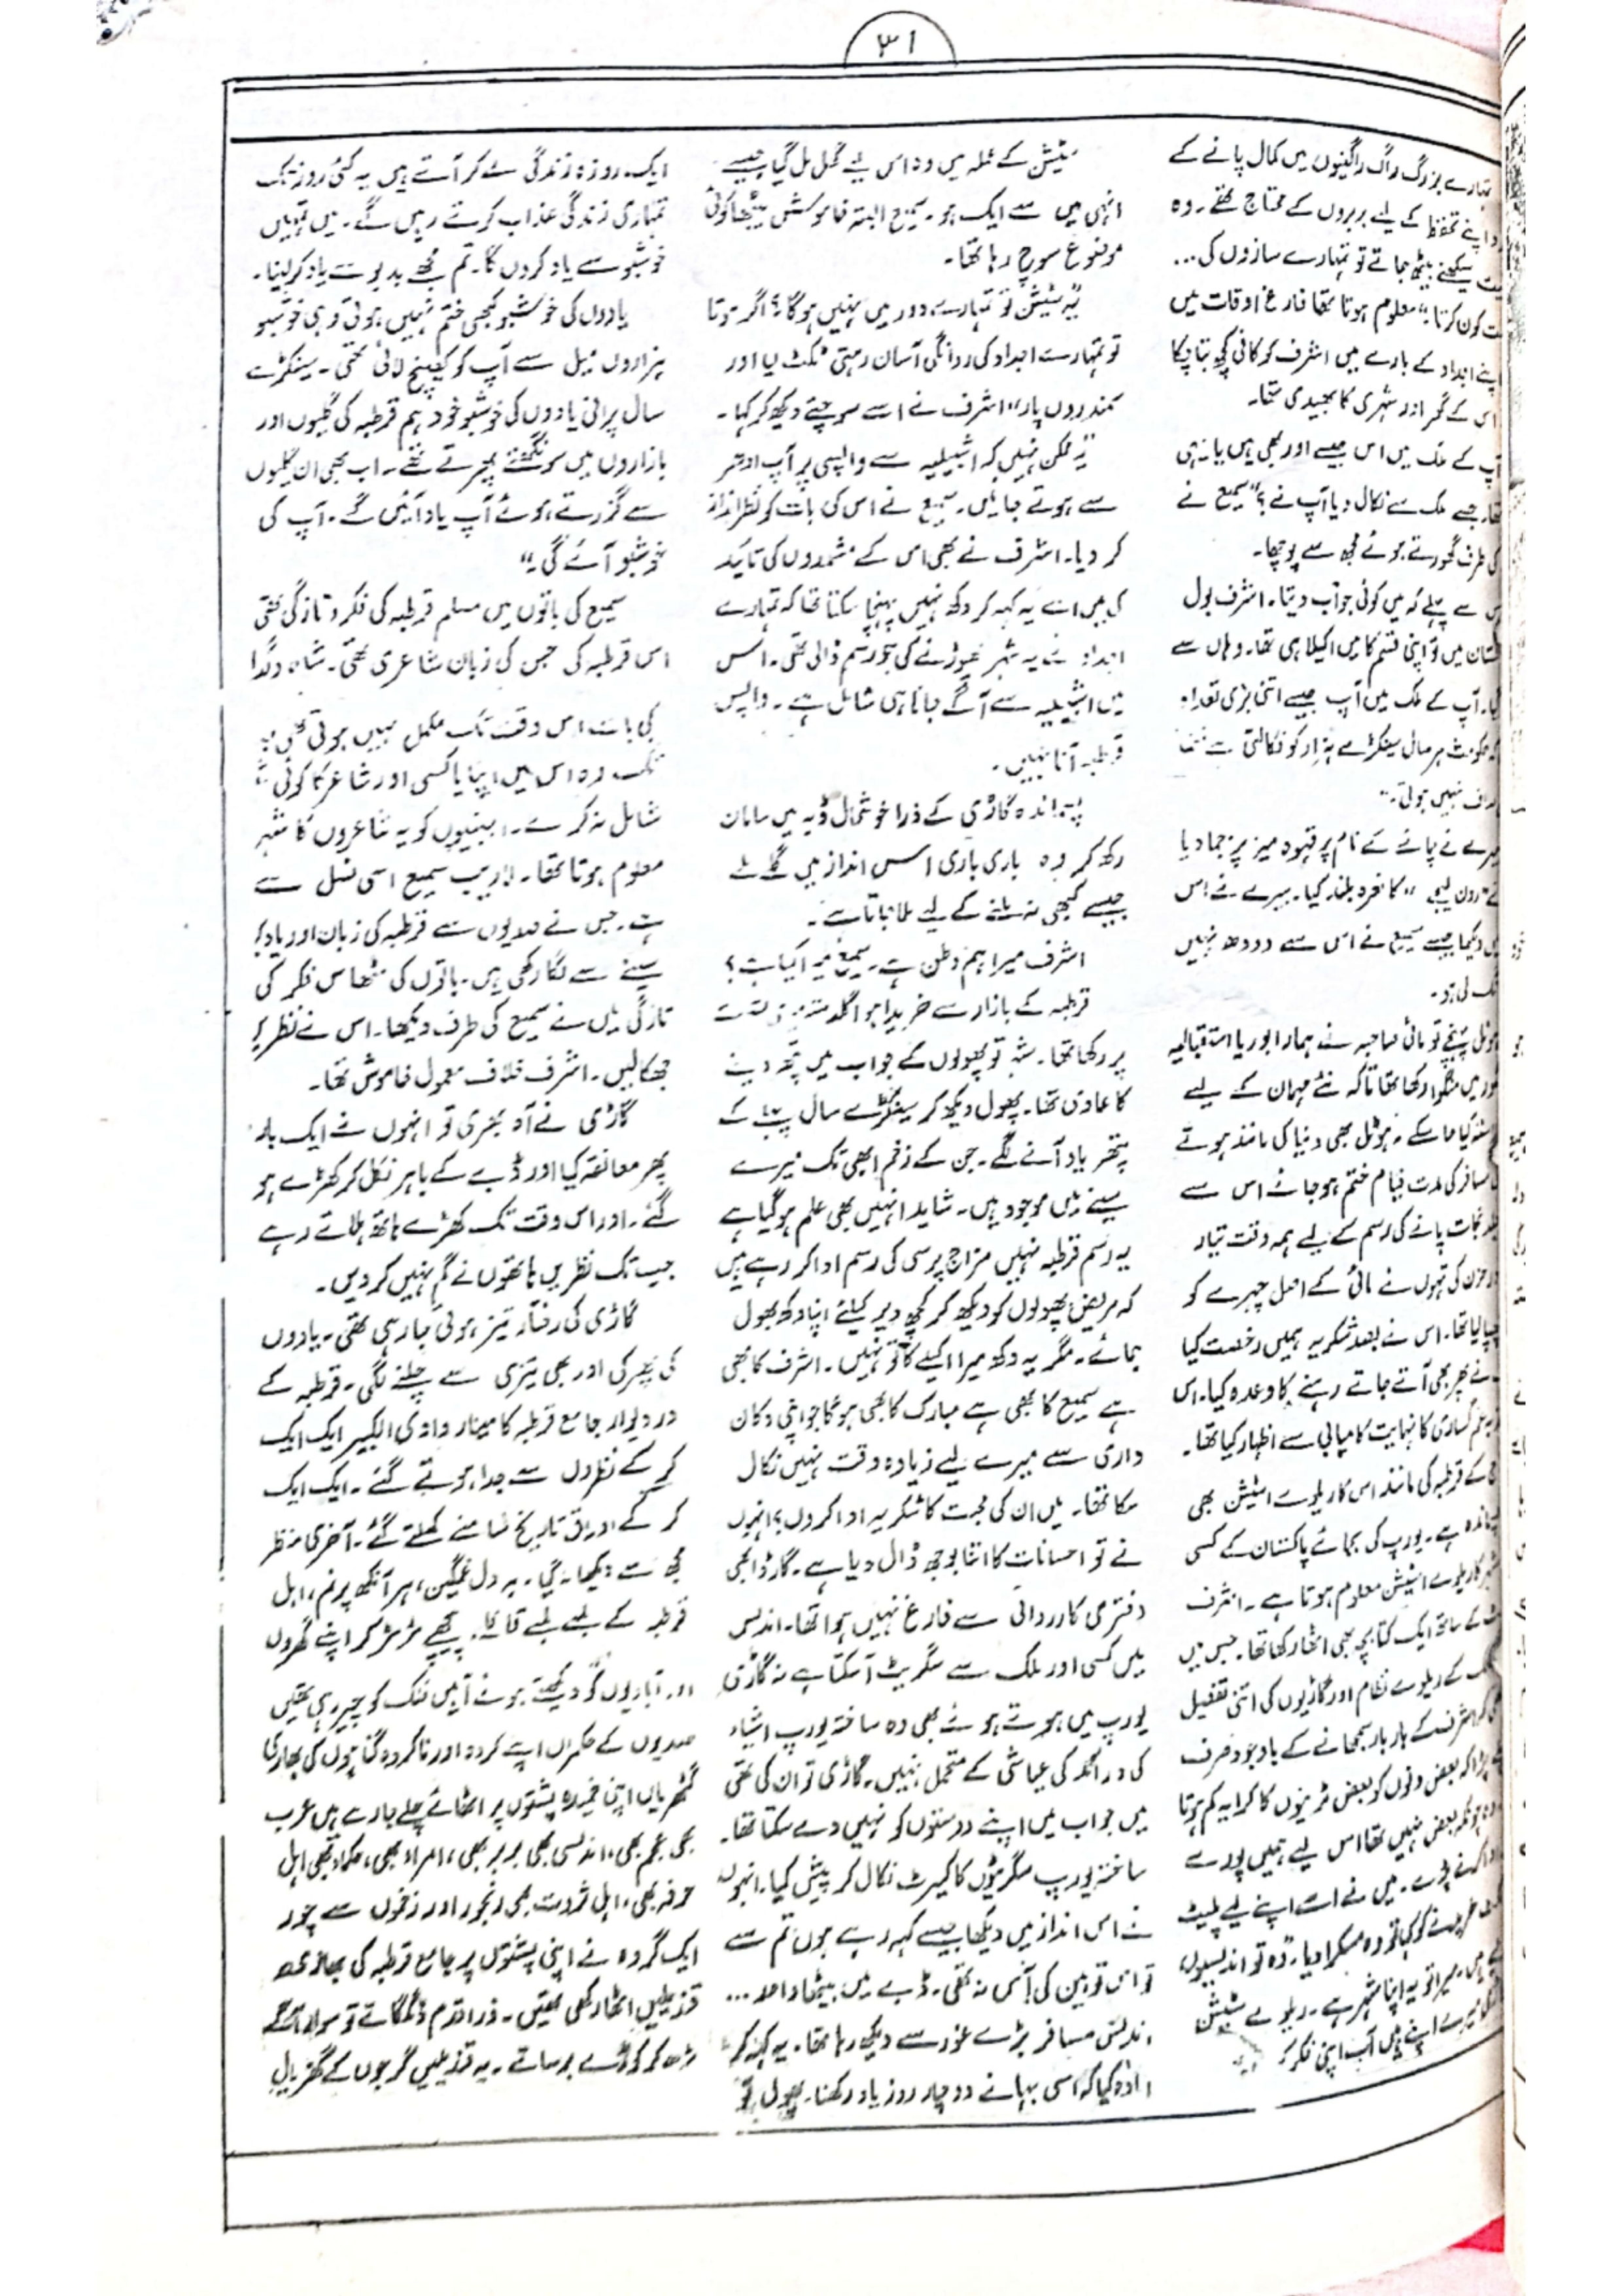 ۳۱
تمہارے بزرگ راگ راگنیوں میں کمال پانے کے
اپنے تحفظ کے لیے بربروں کے محتاج تھے۔ وہ
سیکھنے بیٹھ جاتے تو تمہارے سازوں کی...
کون کرتا؟" معلوم ہوتا تھا فارغ اوقات میں
اپنے اجداد کے بارے میں اشرف کو کافی کچھ بتا چکا
اس کے گھر اور شہری کا بھیدی تھا۔
آپ کے ملک میں اس جیسے اور بھی ہیں یا یہی
تھا جسے ملک سے نکال دیا آپ نے؟" سمیع نے
کی طرف گھورتے ہوئے مجھ سے پوچھا۔
اس سے پہلے کہ میں کوئی جواب دیتا۔ اشرف بول
میں تو اپنی قسم کا میں اکیلا ہی تھا۔ وہاں سے
آپ کے ملک میں آپ جیسے اتنی بڑی تعداد
ہر سال سینکڑے ہزار کو نکالتی ہے
نہیں ہوتی۔"
نے چائے کے نام پر قہوہ میز پر جما دیا
کا نعرہ بلند کیا۔ بیرے نے اس
دیکھا جیسے سمیع نے اس سے دودھ نہیں
لی ہو۔
ہوٹل پہنچے تو مائی صاحبہ نے ہمارا بوریا استقبالیہ
میں منگوا رکھا تھا تاکہ نئے مہمان کے لیے
کیا جا سکے۔ ہوٹل بھی دنیا کی مانند ہوتے
مسافر کی مدت قیام ختم ہو جائے اس سے
نجات پانے کی رسم کے لیے ہمہ وقت تیار
حزن کی تہوں نے مائی کے اصل چہرے کو
چھپا لیا تھا۔ اس نے بصد شکریہ ہمیں رخصت کیا
نے پھر بھی آتے جاتے رہنے کا وعدہ کیا۔ اس
غم گساری کا نہایت کامیابی سے اظہار کیا تھا۔
کے قرطبہ کی مانند اس کا ریلوے اسٹیشن بھی
پسماندہ ہے۔ یورپ کی بجائے پاکستان کے کسی
شہر کا ریلوے اسٹیشن معلوم ہوتا ہے۔ اشرف
کے ساتھ ایک کتابچہ بھی اٹھا رکھا تھا۔ جس میں
کے ریلوے نظام اور گاڑیوں کی اتنی تفصیل
کہ اشرف کے بار بار سمجھانے کے باوجود صرف
کہ بعض دنوں کو بعض ٹرینوں کا کرایہ کم ہوتا
چونکہ بعض نہیں تھا اس لیے ہمیں پورے
ادا کرنے پڑے۔ میں نے اسے اپنے لیے پلیٹ
خریدنے کو کہا تو وہ مسکرا دیا۔ "وہ تو اندلسیوں
میرا تو یہ اپنا شہر ہے۔ ریلوے سٹیشن
میرے اپنے ہیں آپ اپنی فکر
سٹیشن کے عملہ میں وہ اس لیے گھل مل گیا جیسے
انہی میں سے ایک ہو۔ سمیع البتہ خاموش بیٹھا کوئی
موضوع سوچ رہا تھا۔
"یہ سٹیشن تو تمہارے دور میں نہیں ہوگا؟ اگر ہوتا
تو تمہارے اجداد کی روانگی آسان رہتی ٹکٹ لیا اور
سمندروں پار" اشرف نے اسے سوچتے دیکھ کر کہا۔
"یہ ممکن نہیں کہ اشبیلیہ سے واپسی پر آپ ادھر
سے ہوتے جائیں۔ سمیع نے اس کی بات کو نظر انداز
کر دیا۔ اشرف نے بھی اس کے مشوروں کی تائید
کی میں اسے یہ کہہ کر دکھ نہیں پہنچا سکتا تھا کہ تمہارے
اجداد نے یہ شہر چھوڑنے کی جو رسم ڈالی تھی۔ اس
میں اشبیلیہ سے آگے جانا ہی شامل ہے۔ واپس
قرطبہ آنا نہیں۔
پسماندہ گاڑی کے ذرا خوشحال ڈبہ میں سامان
رکھ کر وہ باری باری اس انداز میں گلے ملے
جیسے کبھی نہ ملنے کے لیے ملا جاتا ہے۔
اشرف میرا ہم وطن ہے۔ سمیع میرا کیا ہے؟
قرطبہ کے بازار سے خریدا ہوا گلدستہ نشست
پر رکھا تھا۔ شہر تو پھولوں کے جواب میں پتھر دینے
کا عادی تھا۔ پھول دیکھ کر سینکڑے سال پہلے کے
پتھر یاد آنے لگے۔ جن کے زخم ابھی تک میرے
سینے میں موجود ہیں۔ شاید انہیں بھی علم ہو گیا ہے
یہ رسم قرطبہ نہیں مزاج پرسی کی رسم ادا کر رہے ہیں
کہ مریض پھولوں کو دیکھ کر کچھ دیر کیلئے اپنا دکھ بھول
جائے۔ مگر یہ دکھ میرا اکیلے کا تو نہیں۔ اشرف کا بھی
ہے سمیع کا بھی ہے مبارک کا بھی ہوگا جو اپنی دکان
داری سے میرے لیے زیادہ وقت نہیں نکال
سکا تھا۔ میں ان کی محبت کا شکریہ ادا کروں؟ انہوں
نے تو احسانات کا اتنا بوجھ ڈال دیا ہے۔ گارڈ ابھی
دفتری کارروائی سے فارغ نہیں ہوا تھا۔ اندلس
میں کسی اور ملک سے سگریٹ آ سکتا ہے نہ گاڑی
یورپ میں ہوتے ہوئے بھی وہ ساختہ یورپ اشیاء
کی درآمد کی عیاشی کے متحمل نہیں۔ گاڑی تو ان کی تھی
میں جواب میں اپنے دوستوں کو نہیں دے سکتا تھا۔
ساختہ یورپ سگریٹوں کا کیرٹ نکال کر پیش کیا۔ انہوں
نے اس انداز میں دیکھا جیسے کہہ رہے ہوں تم سے
تو اس توہین کی آس نہ تھی۔ ڈبے میں بیٹھا واحد...
اندلسی مسافر بڑے غور سے دیکھ رہا تھا۔ یہ کہہ کر
ارادہ کیا کہ اسی بہانے دو چار روز یاد رکھنا۔ پھول تو
ایک روزہ زندگی لے کر آتے ہیں یہ کئی روز تک
تمہاری زندگی عذاب کرتے رہیں گے۔ میں تمہیں
خوشبو سے یاد کروں گا۔ تم مجھے بدبو سے یاد کر لینا۔
یادوں کی خوشبو کبھی ختم نہیں ہوتی وہی خوشبو
ہزاروں میل سے آپ کو کھینچ لائی تھی۔ سینکڑے
سال پرانی یادوں کی خوشبو خود ہم قرطبہ کی گلیوں اور
بازاروں میں سونگھتے پھرتے تھے۔ اب بھی ان گلیوں
سے گزرتے ہوئے آپ یاد آئیں گے۔ آپ کی
خوشبو آئے گی۔"
سمیع کی باتوں میں مسلم قرطبہ کی فکر و تازگی تھی
اس قرطبہ کی جس کی زبان شاعری تھی۔ شاہ و گدا
کی بات اس وقت تک مکمل نہیں ہوتی تھی جب
تک وہ اس میں اپنا یا کسی اور شاعر کا کوئی
شامل نہ کرے۔ اجنبیوں کو یہ شاعروں کا شہر
معلوم ہوتا تھا۔ لاریب سمیع اسی نسل سے
ہے۔ جس نے صدیوں سے قرطبہ کی زبان اور یاد
سینے سے لگا رکھی ہیں۔ باتوں کی مٹھاس فکر کی
تازگی میں نے سمیع کی طرف دیکھا۔ اس نے نظریں
جھکا لیں۔ اشرف خلاف معمول خاموش تھا۔
گاڑی نے آہ بھری تو انہوں نے ایک بار
پھر معانقہ کیا اور ڈبے کے باہر نکل کر کھڑے ہو
گئے۔ اور اس وقت تک کھڑے ہاتھ ہلاتے رہے
جب تک نظریں ہاتھوں نے گم نہیں کر دیں۔
گاڑی کی رفتار تیز ہوتی جا رہی تھی۔ یادوں
کی چرکی اور بھی تیزی سے چلنے لگی۔ قرطبہ کے
در و دیوار جامع قرطبہ کا مینار وادی الکبیر ایک ایک
کر کے نظروں سے جدا ہوتے گئے۔ ایک ایک
کر کے اوراق تاریخ سامنے کھلتے گئے۔ آخری منظر
مجھ سے دیکھا نہ گیا۔ ہر دل غمگین، ہر آنکھ پرنم، اہل
قرطبہ کے لمبے لمبے قافلے، پیچھے مڑ مڑ کر اپنے گھروں
اور آبادیوں کو دیکھتے ہوئے آہیں فلک کو چیر رہی تھیں
صدیوں کے حکمراں اپنے کردہ اور ناکردہ گناہوں کی بھاری
گٹھریاں اپنی خمیدہ پشتوں پر اٹھائے چلے جا رہے ہیں عرب
بھی عجم بھی، اندلسی بھی بربر بھی، امراء بھی، حکماء بھی اہل
حرفہ بھی، اہل ثروت بھی رنجور اور زخموں سے چور
ایک گروہ نے اپنی پشتوں پر جامع قرطبہ کی بھاری
قندیلیں اٹھا رکھی تھیں۔ ذرا قدم ڈگمگاتے تو سوار آگے
بڑھ کر کوڑے برساتے۔ یہ قندیلیں گرجوں کے گھڑیال